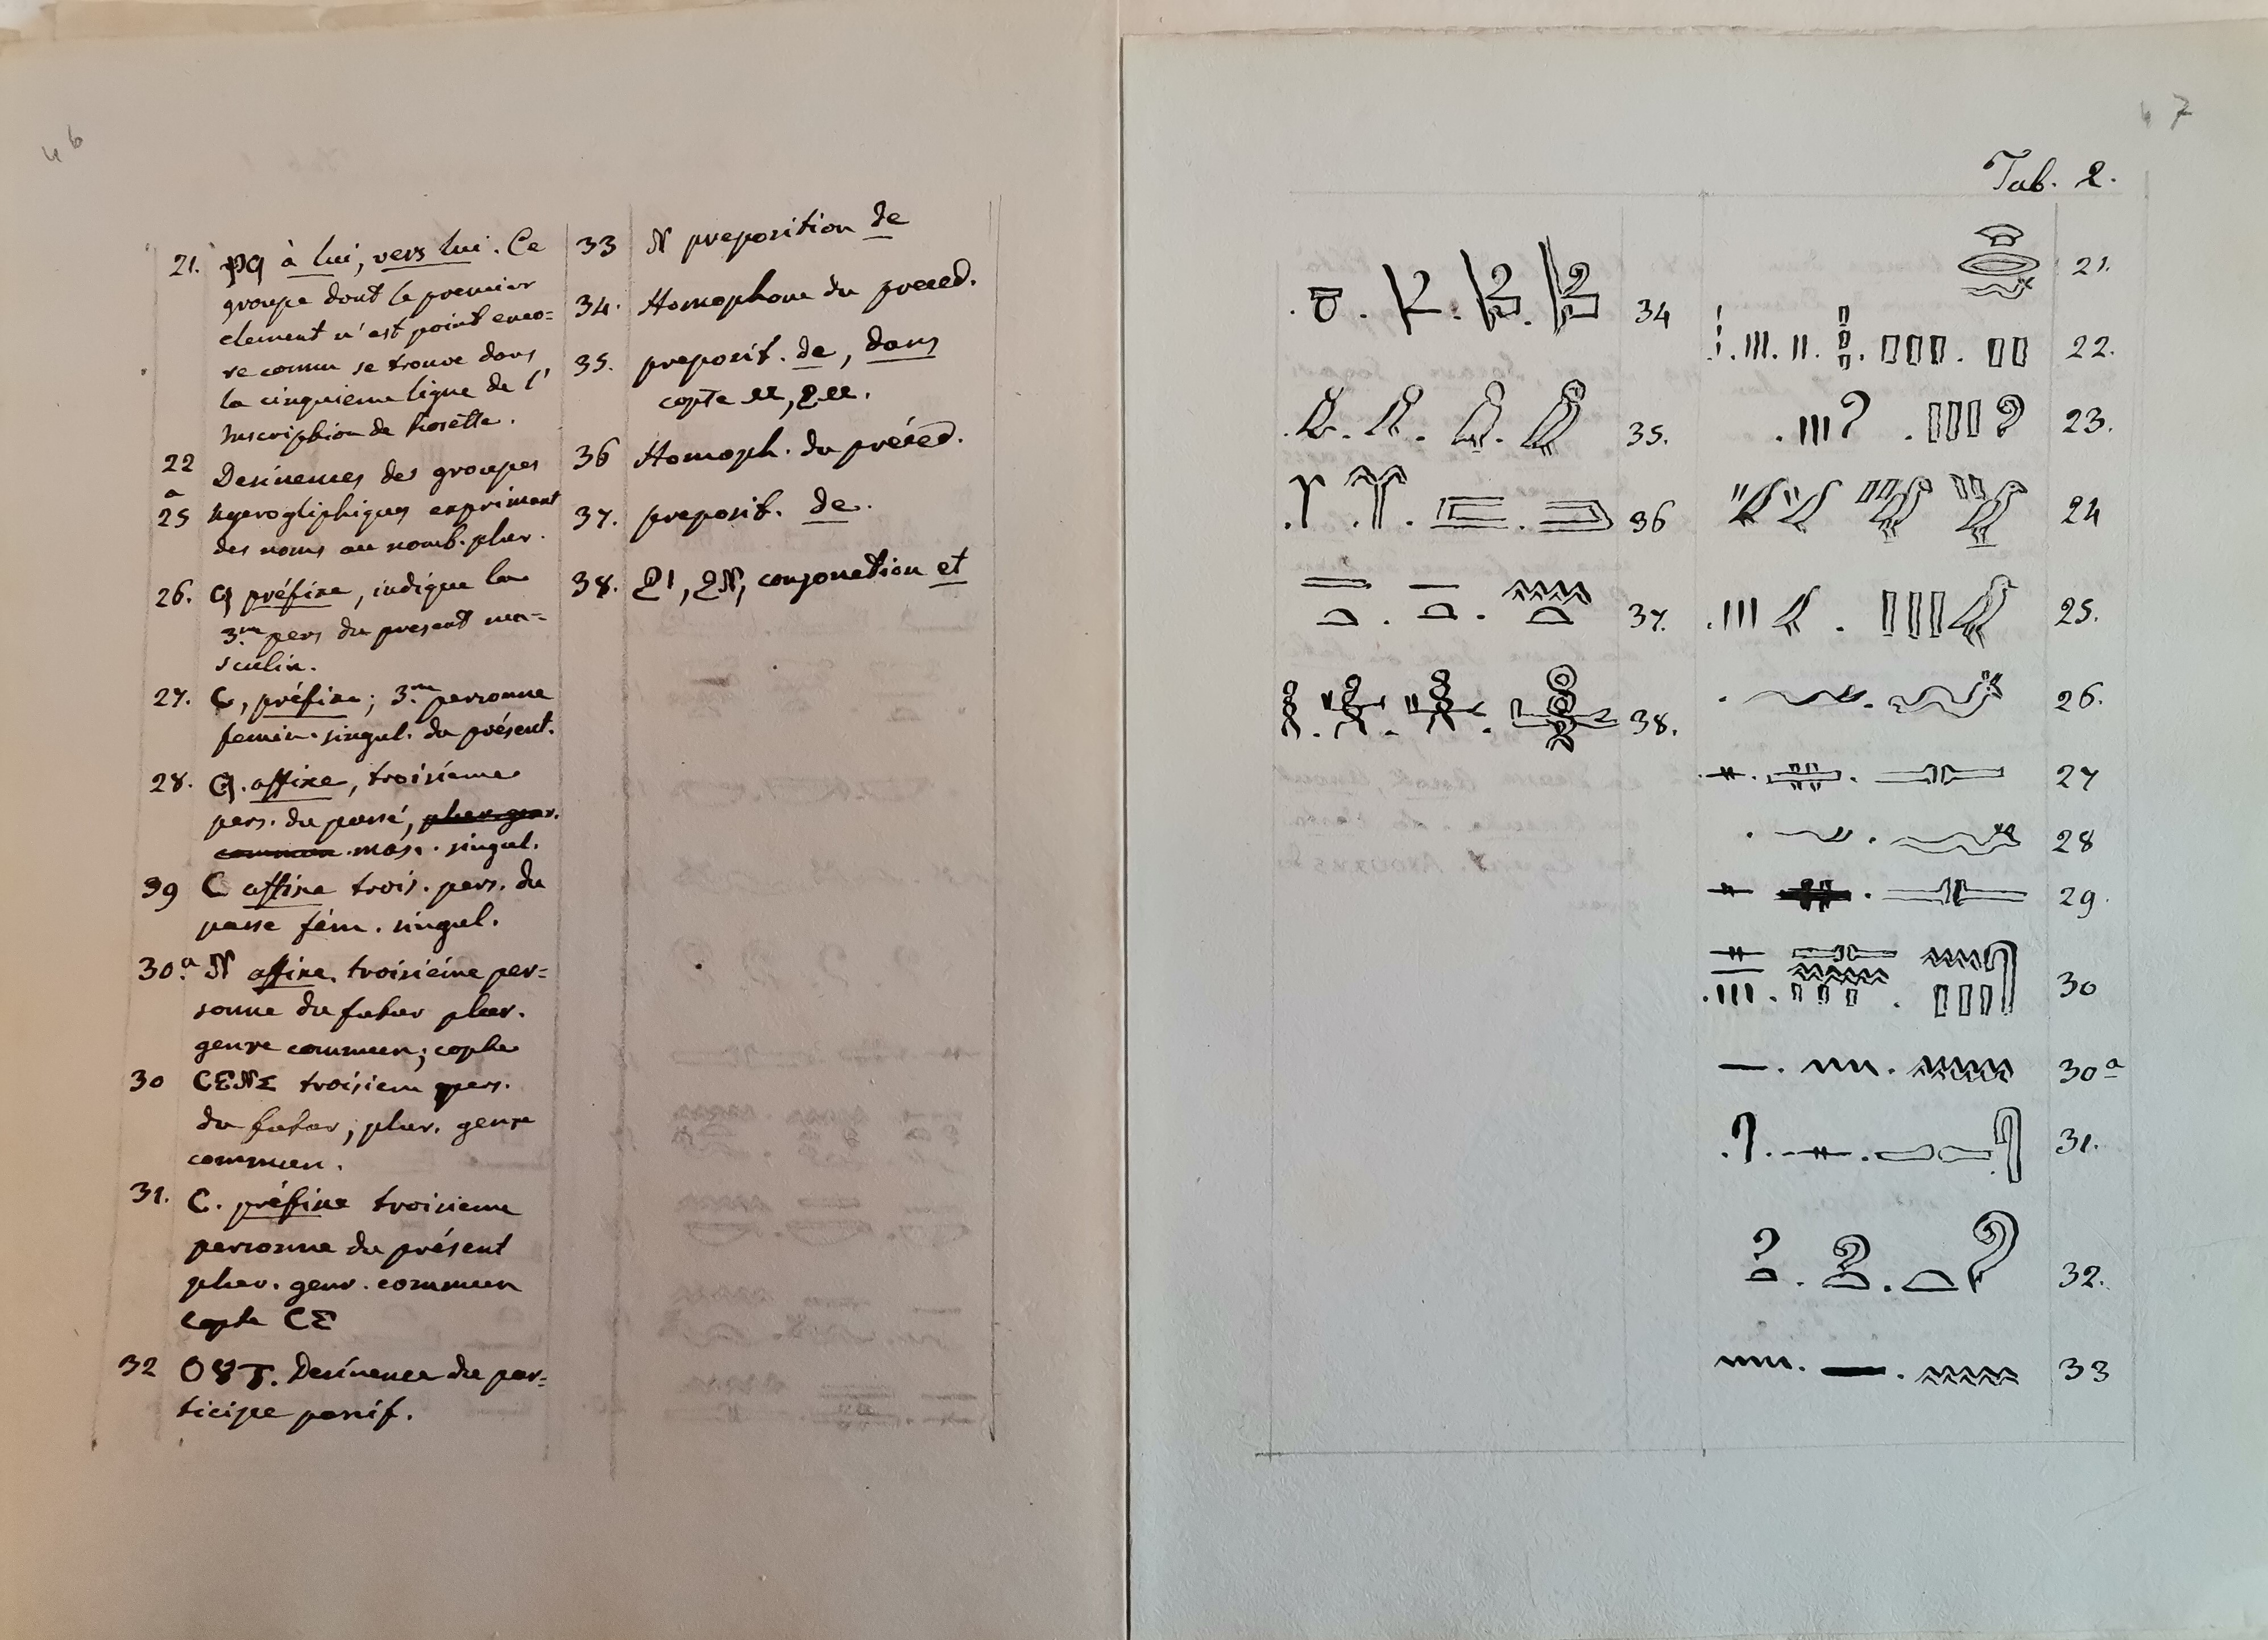 46
21. ⲣϥ à lui, vers lui. Ce
groupe dont le premier
element n'est point enco=
re connu se trouve dans
la cinquieme ligne de l'
Inscription de Rosette.
22
a
25
Desinences des groupes
hyerogliphiques exprimant
des noms au nomb. plur.
26. ϥ préfixe, indique la
3.me pers du present ma=
sculin.
27. ⲥ, préfixe; 3.me personne
femin. singul. du présent.
28. ϥ. affixe, troisieme
pers. du passé, plur. genr.
commun mas. singul.
39 ⲥ affixe trois. pers. du
passe fém. singul.
30.a ⲛ affixe troisiéme per=
sonne du futur plur.
genre commun; copte
30 ⲥⲉⲛⲉ troisiem pers.
du futur, plur. genre
commun.
31. ⲥ. préfixe troisieme
personne du présent
plur. genr. commun
copte ⲥⲉ
32 ⲟⲩⲧ. Desinence du par=
ticipe passif.
33 ⲛ preposition de
34. Homophone du preced.
35. preposit. de, dans
copte ⲙ, ϩⲙ.
36 Homoph. du préced.
37. preposit. de.
38. ϩⲓ, ϩⲛ, conjonction et
47
Tab. 2.
34
35.
36
37.
38.
21.
22.
23.
24
25.
26.
27
28
29.
30
30a
31.
32.
33